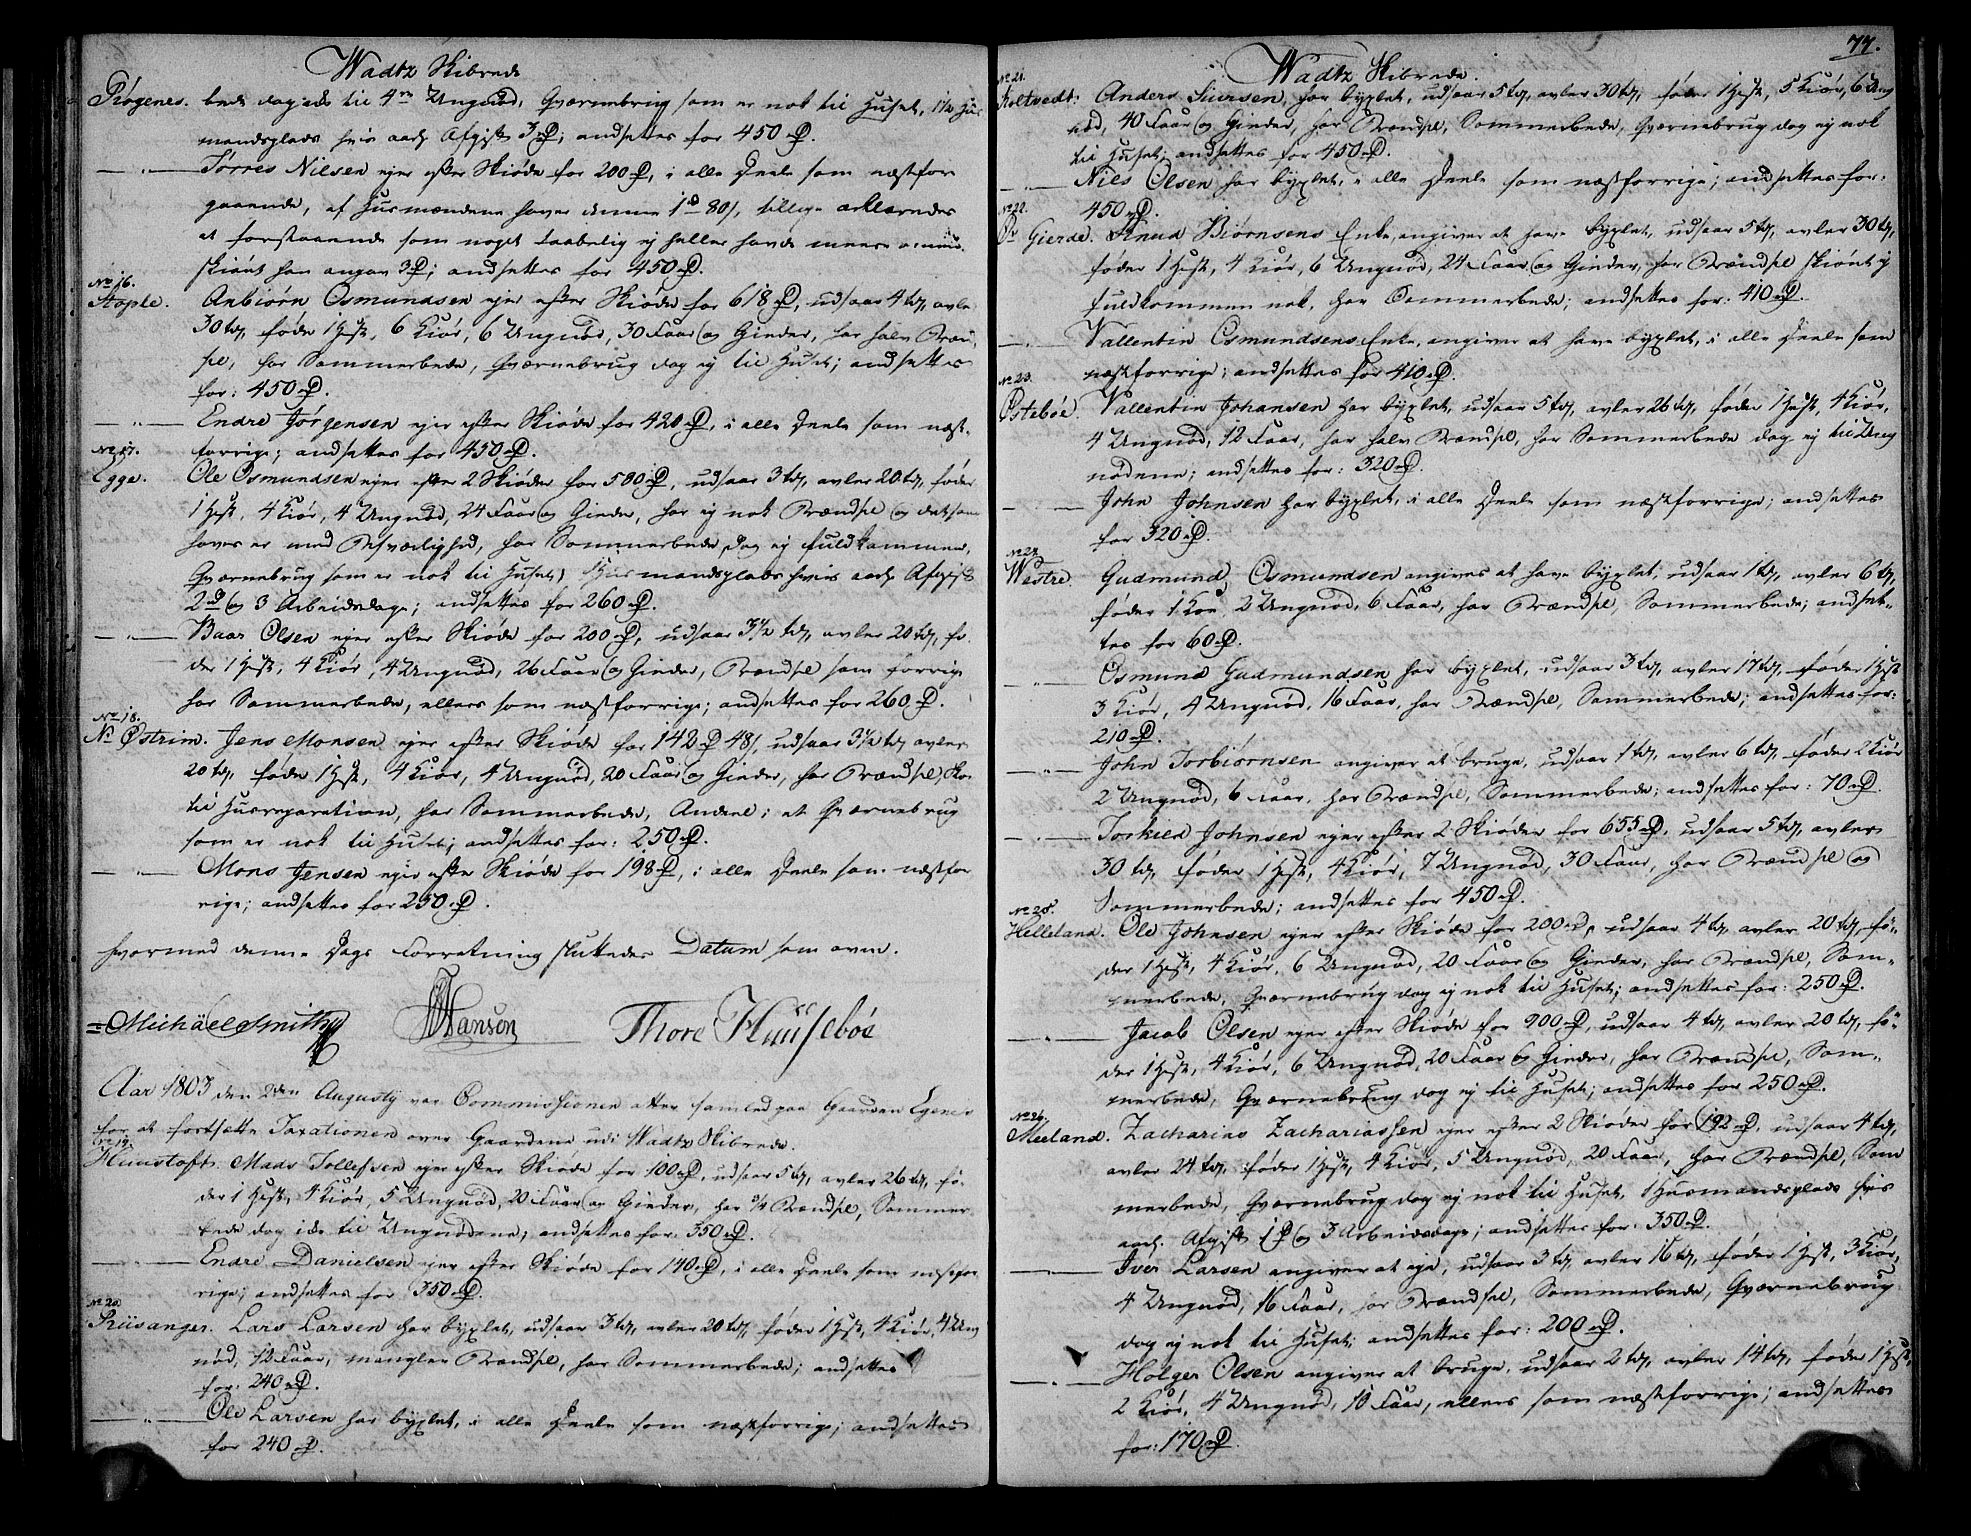 Wadtz Skibrede
Rørgenes. bede dog icke til 4re Ungnød, Qværnebrug som er nok til Huset, 1 Huus
mandsplads hvis aarl Afgift 3 rd; andsettes for 450 rd.
—"— Tørres Nilsen ejer efter Skiøde for 200 rd, i alle Deele som næstfore
gaaende, af Huusmændene haver denne 1 rd 80 s, tillige erklæredes
at forstaaende som noget taabelig ej heller havde meere
skiønt han angav 3 rd; andsettes for 450 rd.
No 16.
Stople. Anbiørn Osmundsen ejer efter Skiøde for 618 rd, udsaar 4 tdr, avler
30 tdr, føder 1 Hest, 6 Kiør, 6 Ungnød, 30 Faar og Gieder, har halv Brænd
sel, har Sommerbede, Qværnebrug dog ej til Huset; andsettes
for: 450 rd.
—"— Endre Jørgensen ejer efter Skiøde for 420 rd, i alle Deele som næst-
forrige; andsettes for 450 rd.
No 17.
Egge. Ole Osmundsen ejer efter 2 Skiøder for 500 rd, udsaar 3 tdr, avler 20 tdr, føder
1 Hest, 4 Kiør, 4 Ungnød, 24 Faar og Gieder, har ej nok Brændsel og det som
haves er med Besværlighed, har Sommerbede dog ej fuldkommen,
Qværnebrug som er nok til Huset, 1 Huusmandsplads hvis aarl Afgift
2 rd og 3 Arbeidsdage; andsettes for 260 rd.
—"— Baar Olsen ejer efter Skiøde for 200 rd, udsaar 3 1/2 tdr, avler 20 tdr, fø-
der 1 Hest, 4 Kiør, 4 Ungnød, 26 Faar og Gieder, Brændsel som forrige
har Sommerbede, ellers som næstforrige; andsettes for 260 rd.
No 18.
Nr Østrim. Jens Monsen ejer efter Skiøde for 142 rd 48 s, udsaar 3 1/2 tdr avler
20 tdr, føder 1 Hest, 4 Kiør, 4 Ungnød, 20 Faar og Gieder, har Brændsel, Skov
til Huusreparation, har Sommerbede, Andeel i et Qværnebrug
som er nok til Huset; andsettes for: 250 rd.
—"— Mons Jensen ejer efter Skiøde for 198 rd, i alle Deele som næstfor
rige; andsettes for 250 rd.
hvormed denne Dags Forretning sluttedes Datum som oven.
Michäel Smith Hanson Thore Huusebøe
Aar 1803 den 2den Augusty var Commissionen atter samled paa Gaarden Egenes
for at fortsætte Taxationen over Gaardene udi Wadtz Skibrede.
No 19.
Huustoft. Mads Tollefsen ejer efter Skiøde for 100 rd, udsaar 5 tdr, avler 26 tdr, fø-
der 1 Hest, 4 Kiør, 5 Ungnød, 20 Faar og Gieder, har 3/4 Brændsel, Sommer
bede dog icke til Ungnødene; andsettes for: 350 rd.
—"— Endre Danielsen ejer efter Skiøde for 140 rd, i alle Deele som næstfor
rige; andsettes for 350 rd.
No 20.
Riisanger. Lars Larsen har bygslet, udsaar 3 tdr, avler 20 tdr, føder 1 Hest, 4 Kiør, 4 Ung
nød, 12 Faar, mangler Brændsel, har Sommerbede; andsettes
for: 240 rd.
—"— Ole Larsen har bygslet, i alle Deele som næstforrige; andsettes
for 240 rd.
77.
Wadtz Skibrede.
No 21.
Koltvedt: Anders Siursen, har bygslet, udsaar 5 tdr, avler 30 tdr, føder 1 Hest, 5 Kiør, 6 Ung
nød, 40 Faar og Gieder, har Brændsel, Sommerbede, Qværnebrug dog ej nok
til Huset; andsettes for 450 rd.
—"— Niels Olsen har bygslet, i alle Deele som næstforrige; andsettes for:
450 rd.
No 22.
Gierde. Knud Biørnsens Enke, angiver at have bygslet, udsaar 5 tdr, avler 30 tdr,
føder 1 Hest, 4 Kiør, 6 Ungnød, 24 Faar og Gieder, har Brændsel skiønt ej
fuldkommen nok, har Sommerbede; andsettes for: 410 rd.
—"— Vallentin Osmundsens Enke, angiver at have bygslet, i alle Deele som
næstforrige; andsettes for 410 rd.
No 23.
Østebøe. Vallentin Johansen har bygslet, udsaar 5 tdr, avler 26 tdr, føder 1 Hest, 4 Kiør,
4 Ungnød, 12 Faar, har halv Brændsel, har Sommerbede dog ej til Ung
nødene; andsettes for: 320 rd.
—"— John Johnsen har bygslet, i alle Deele som næstforrige; andsettes
for 320 rd.
No 24.
Westre. Gudmund Osmundsen angives at have bygslet, udsaar 1 tdr, avler 6 tdr,
føder 1 Koe, 2 Ungnød, 6 Faar, har Brændsel, Sommerbede; andset-
tes for 60 rd.
—"— Osmund Gudmundsen har bygslet, udsaar 3 tdr, avler 17 tdr, føder 1 Hest
3 Kiør, 4 Ungnød, 16 Faar, har Brændsel, Sommerbede; andsettes for:
210 rd.
—"— John Torbiørnsen angiver at bruge, udsaar 1 tdr, avler 6 tdr, føder 2 Kiør
2 Ungnød, 6 Faar, har Brændsel, Sommerbede; andsettes for: 70 rd.
—"— Torkild Johnsen ejer efter 2 Skiøder for 655 rd, udsaar 5 tdr, avler
30 tdr, føder 1 Hest, 4 Kiør, 7 Ungnød, 30 Faar, har Brændsel og
Sommerbede; andsettes for 450 rd.
No 25.
Helleland. Ole Johnsen ejer efter Skiøde for 200 rd, udsaar 4 tdr avler 20 tdr, fø-
der 1 Hest, 4 Kiør, 6 Ungnød, 20 Faar og Gieder, har Brændsel, Som-
merbede, Qværnebrug dog ej nok til Huset; andsettes for: 250 rd.
—"— Jacob Olsen ejer efter Skiøde for 900 rd, udsaar 4 tdr, avler 20 tdr, fø-
der 1 Hest, 4 Kiør, 6 Ungnød, 20 Faar og Gieder, har Brændsel, Som-
merbede, Qværnebrug dog ej til Huset; andsettes for 250 rd.
No 26.
Meeland. Zacharias Zachariassen ejer efter 2 Skiøder for 192 rd, udsaar 4 tdr,
avler 24 tdr, føder 1 Hest, 4 Kiør, 5 Ungnød, 20 Faar, har Brændsel, Som
merbede, Qværnebrug dog ej nok til Huset, 1 Huusmandsplads hvis
aarl. Afgift 1 rd og 3 Arbeidsdage; andsettes for: 350 rd.
—"— Iver Larsen angiver at eje, udsaar 3 tdr avler 16 tdr, føder 1 Hest, 3 Kiør,
4 Ungnød, 16 Faar, har Brændsel, Sommerbede, Qværnebrug
dog ej nok til Huset; andsettes for: 200 rd.
—"— Holger Olsen angiver at bruge, udsaar 2 tdr, avler 14 tdr, føder 1 Hest,
2 Kiør, 4 Ungnød, 10 Faar, ellers som næstforrige; andsettes
for: 170 rd.